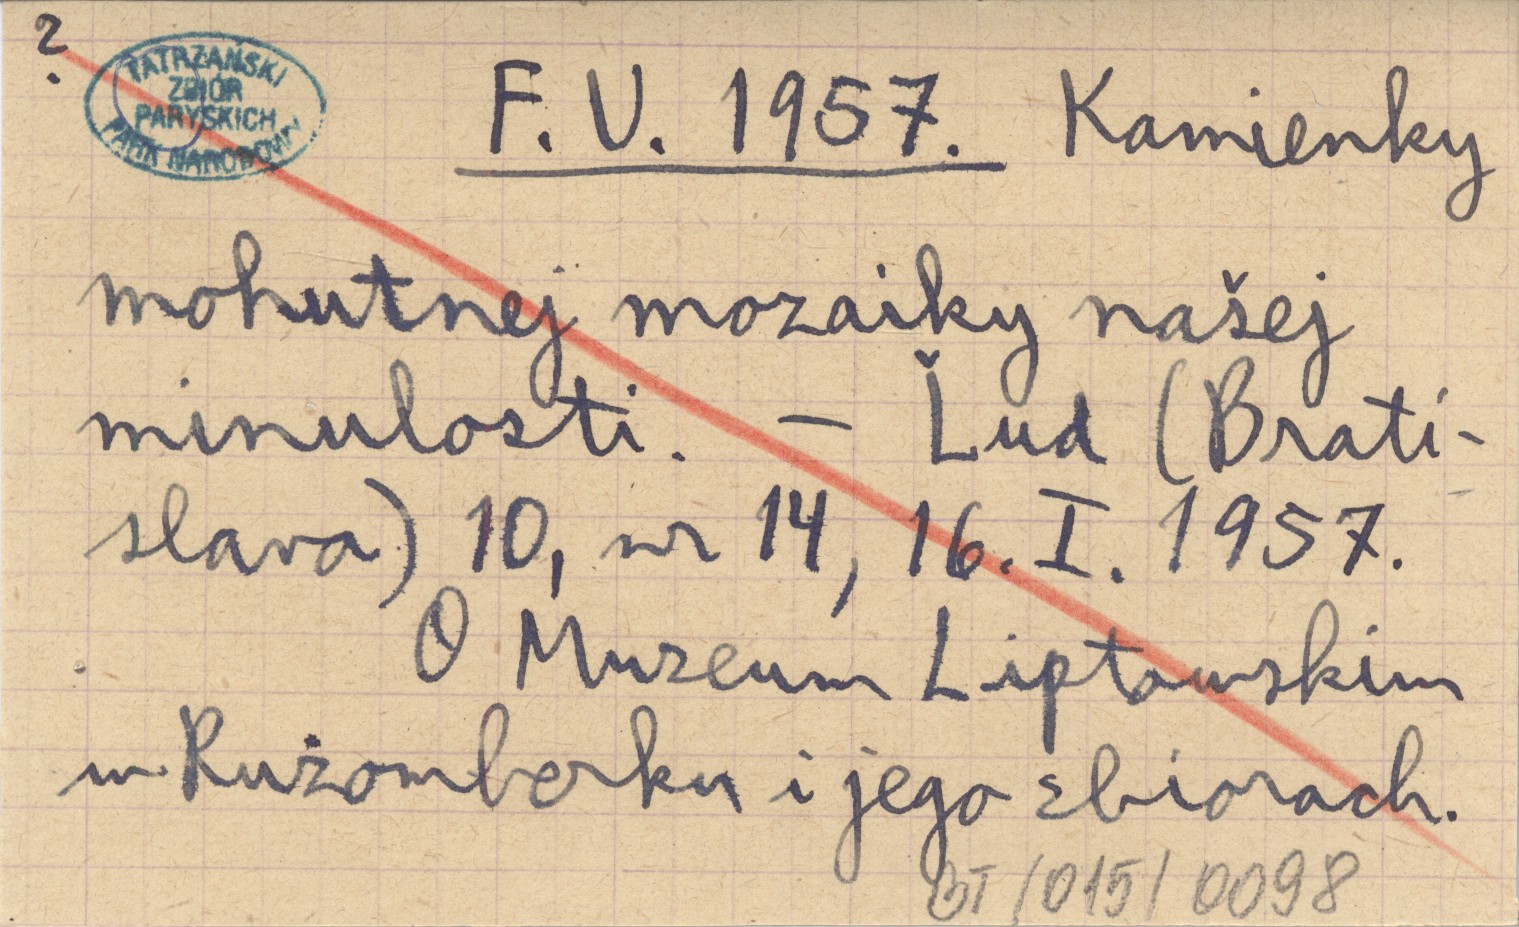 ?
TATRZAŃSKI
ZBIÓR
PARYSKICH
PARK NARODOWY
F. V. 1957. Kamienky
mohutnej mozaiky našej
minulosti. – Ľud (Brati-
slava) 10, nr 14, 16. I. 1957.
O Muzeum Liptowskim
w Rużomberku i jego zbiorach.
BT/015/0098